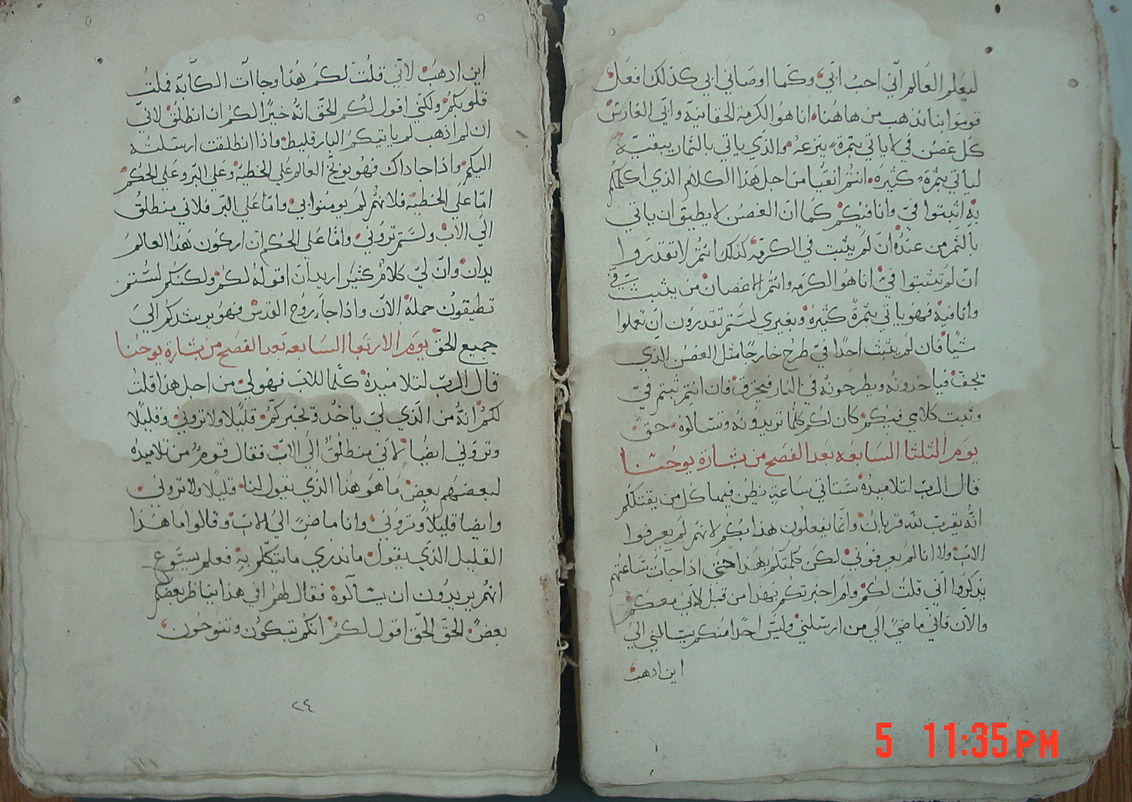 ليعلم العالم اني احب ابي وكما اوصاني ابي كذلك افعل
قوموا بنا نذهب من هاهنا انا هو الكرمه الحقانيه وابي الغارس
كل غصن في لا ياتي بثمرة ينزعه والذي ياتي بالثمار ينقيه
لياتي بثمرة كثيره انتم انقيا من اجل هذا الكلام الذي اكلمكم
به اثبتوا في وانا فيكم كما ان الغصن لا يطيق ان ياتي
بالثمر من عنده ان لم يثبت في الكرمه كذلك انتم لا تقدروا
ان لم تثبتوا في انا هو الكرمه وانتم الاغصان من يثبت في
وانا فيه فهو ياتي بثمرة كثيره وبغيري لستم تقدرون ان تعملوا
شيا فان لم يثبت احدا في طرح خارجا مثل الغصن الذي
يجف فياخدونه ويطرحونه في النار فيحترق فان انتم ثبتم في
وثبت كلامي فيكم كان لكم كلما تريدونه وتسالوه حق
يوم الثلثا السابعه بعد الفصح من بشارة يوحنا
قال الرب لتلاميذه ستاتي ساعة يظن فيها كل من يقتلكم
انه يقرب لله قربان وانما يفعلون هذا بكم لانهم لم يعرفوا
الاب ولا انا لم يعرفوني لكن كلمتكم بهذا حتى اذا جات ساعتهم
يذكروا اني قلت لكم ولم اخبرتكم بهذا من قبل لاني معكم
والان فاني ماضي الى من ارسلني وليس احدا منكم يسالني الى
اين اذهب
اين اذهب لاني قلت لكم هذا وجات الكآبه فملت
قلوبكم ولكني اقول لكم الحق انه خيرا لكم ان انطلق لاني
ان لم اذهب لم ياتيكم البارقليط واذا انطلقت ارسلته
اليكم واذا جا ذاك فهو يوبخ العالم على الخطيه وعلى البر وعلى الحكم
اما على الخطيه فلانهم لم يومنوا بي واما على البر فلاني منطلق
الى الاب ولستم تروني واما على الحكم ان اركون هذا العالم
يدان وان لي كلام كثير اريد ان اقوله لكم ولكنكم لستم
تطيقون حمله الان واذا جا روح القدس فهو يرشدكم الى
جميع الحق يوم الاربعا السابعه بعد الفصح من بشارة يوحنا
قال الرب لتلاميذه كلما للاب فهو لي من اجل هذا قلت
لكم انه من الذي لي ياخذ ويخبركم قليلا ولا تروني وقليلا
وتروني ايضا لاني منطلق الى الاب فقال قوم من تلاميذه
لبعضهم بعض ما هو هذا الذي يقول لنا قليلا ولا تروني
وايضا قليلا وتروني وانا ماضي الى الاب وقالوا ما هذا
القليل الذي يقول ما ندري ما يتكلم به فعلم يسوع
انهم يريدون ان يسألوه فقال لهم افي هذا يناظر بعضكم
بعض الحق الحق اقول لكم انكم تبكون وتنوحون
٢٤
5 11:35 PM